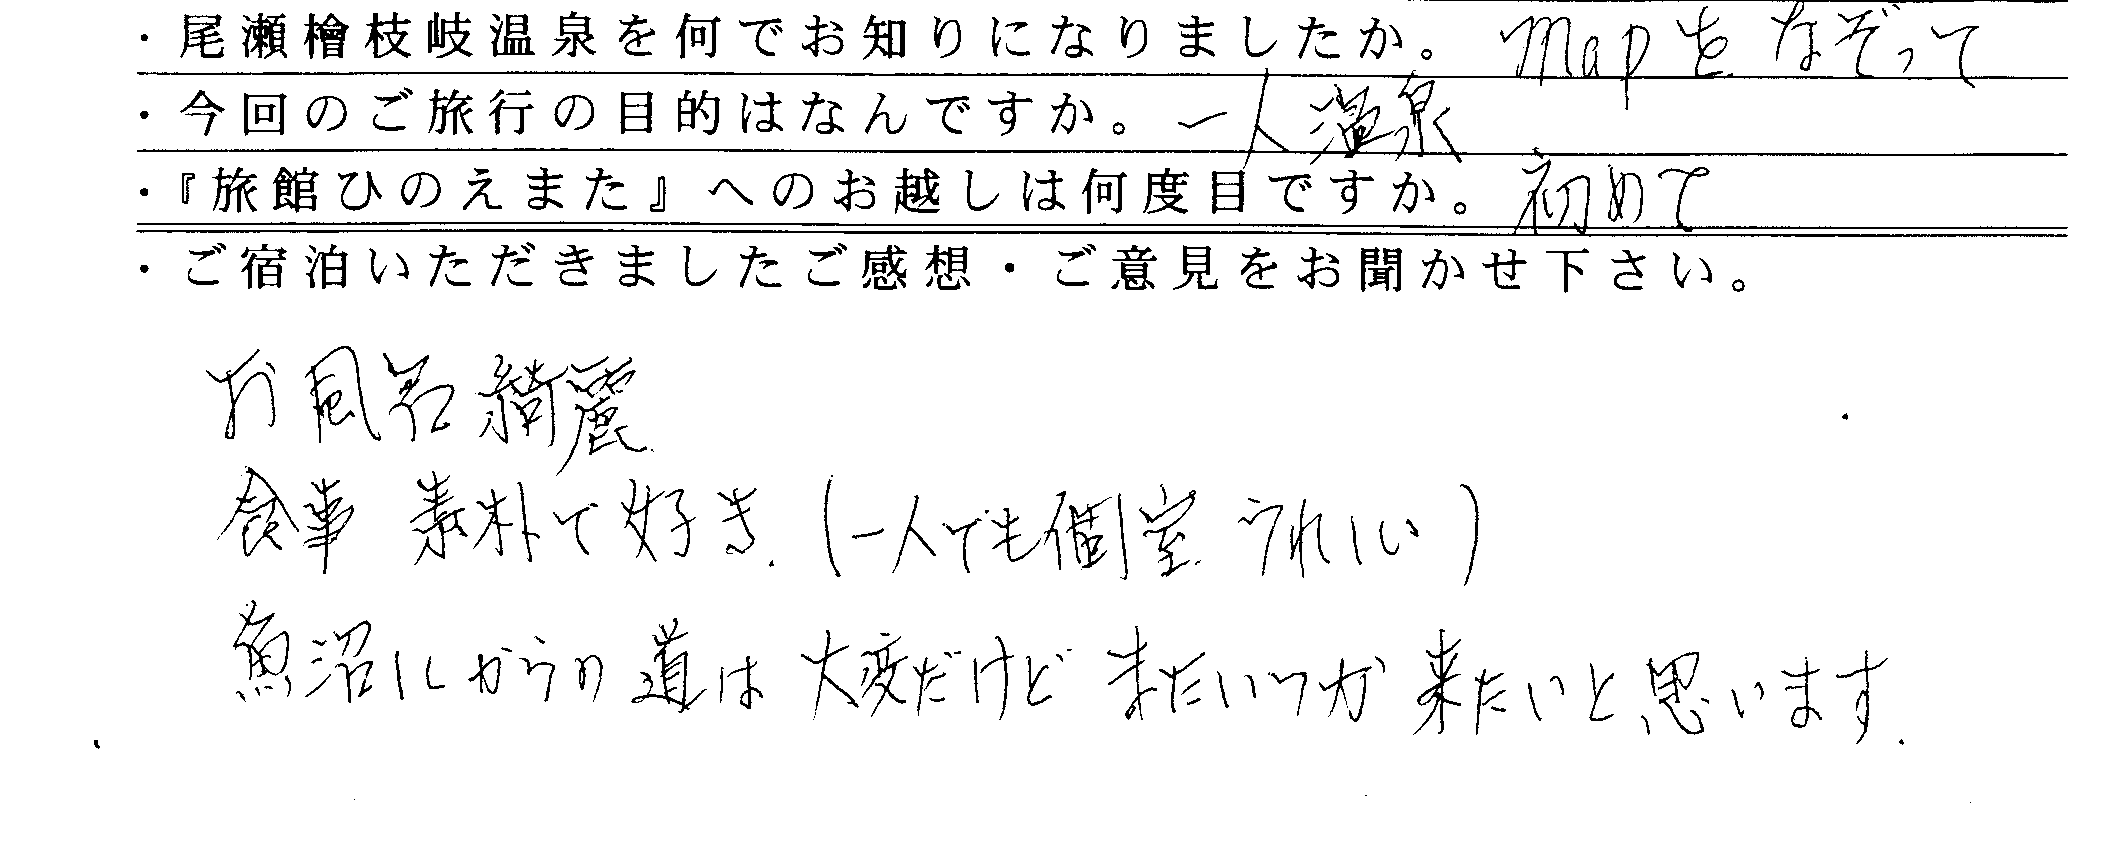 ・尾瀬檜枝岐温泉を何でお知りになりましたか。 Mapをなぞって
・今回のご旅行の目的はなんですか。 一人温泉
・『旅館ひのえまた』へのお越しは何度目ですか。 初めて
・ご宿泊いただきましたご感想・ご意見をお聞かせ下さい。
お風呂綺麗
食事 素朴で好き.(一人でも個室.うれしい)
魚沼からの道は大変だけど またいつか 来たいと思います.